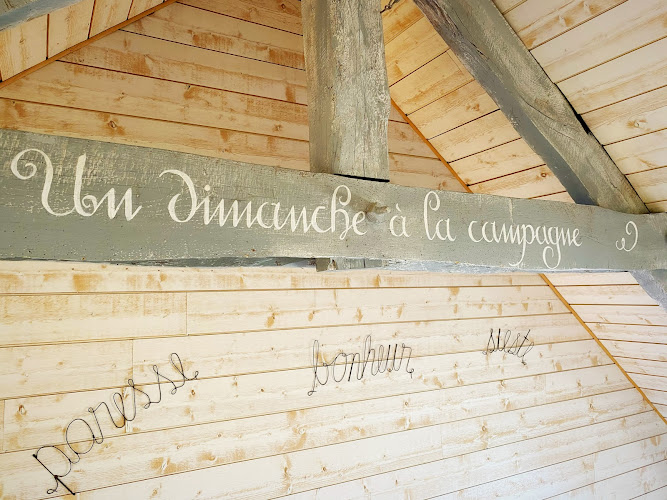 Un dimanche à la campagne
paresse bonheur sieste